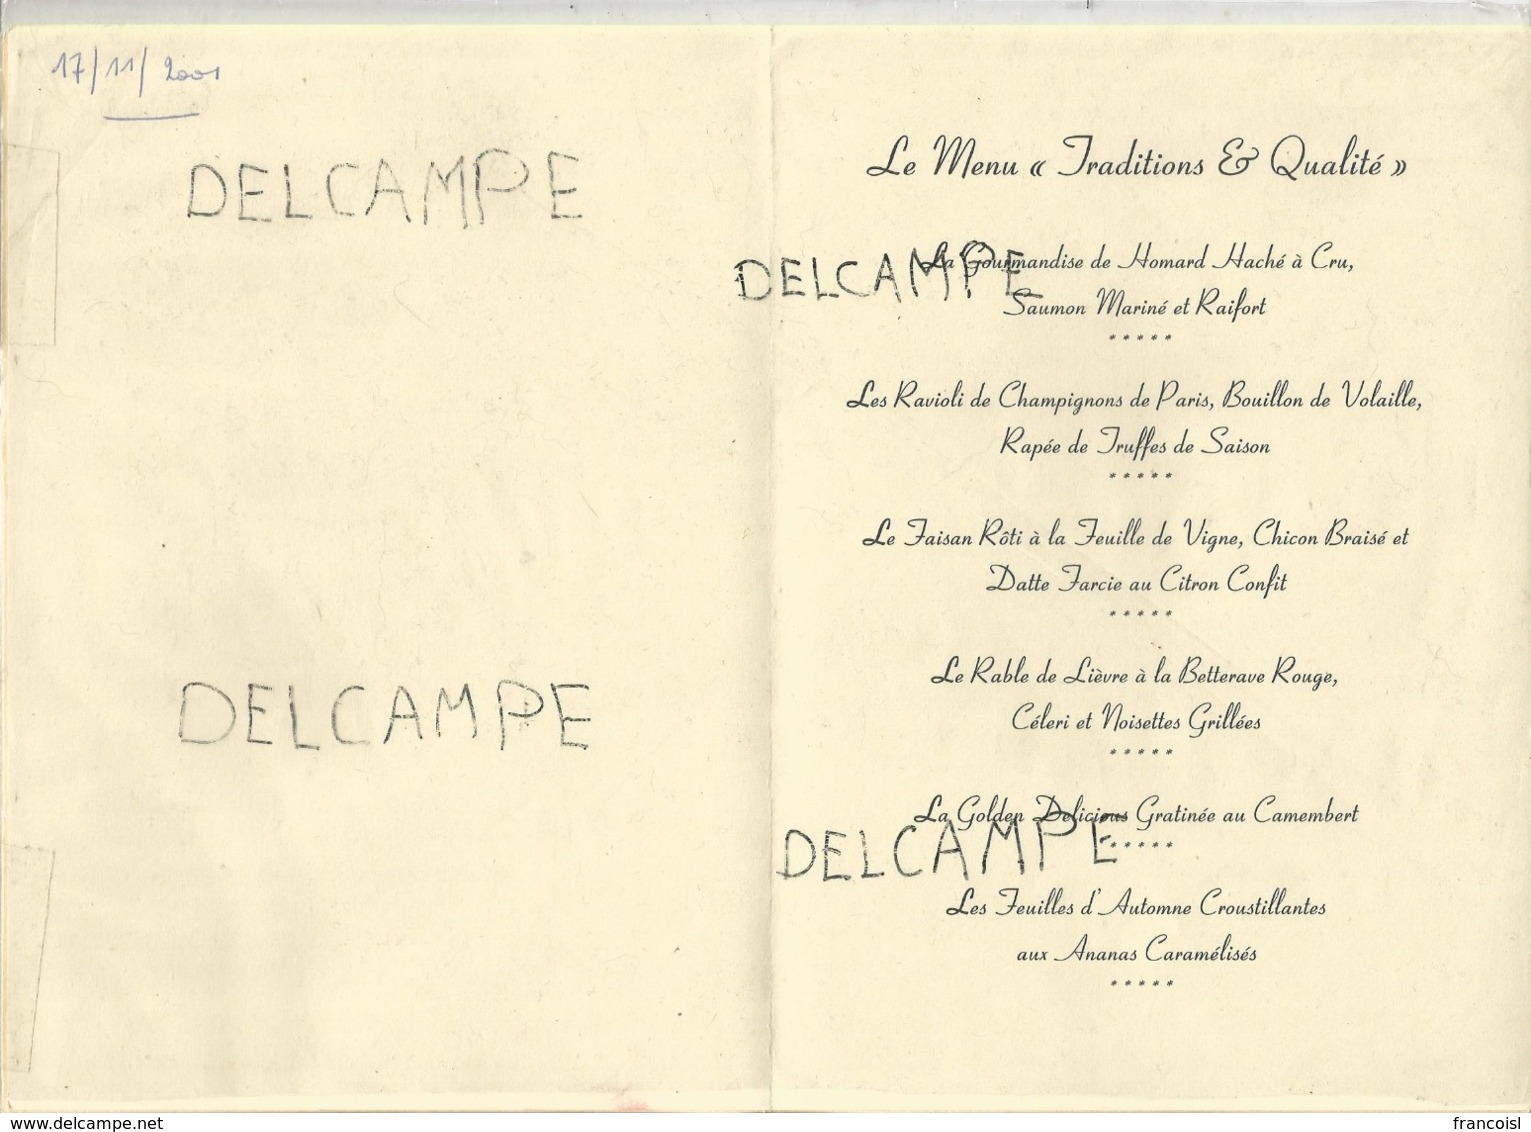 17/11/2001
DELCAMPE
DELCAMPE
Le Menu « Traditions & Qualité »
La Gourmandise de Homard Haché à Cru,
DELCAMPE
Saumon Mariné et Raifort
*****
Les Ravioli de Champignons de Paris, Bouillon de Volaille,
Rapée de Truffes de Saison
*****
Le Faisan Rôti à la Feuille de Vigne, Chicon Braisé et
Datte Farcie au Citron Confit
*****
Le Rable de Lièvre à la Betterave Rouge,
Céleri et Noisettes Grillées
*****
La Golden Delicious Gratinée au Camembert
DELCAMPE
*****
Les Feuilles d'Automne Croustillantes
aux Ananas Caramélisés
*****
www.delcampe.net
francoisl